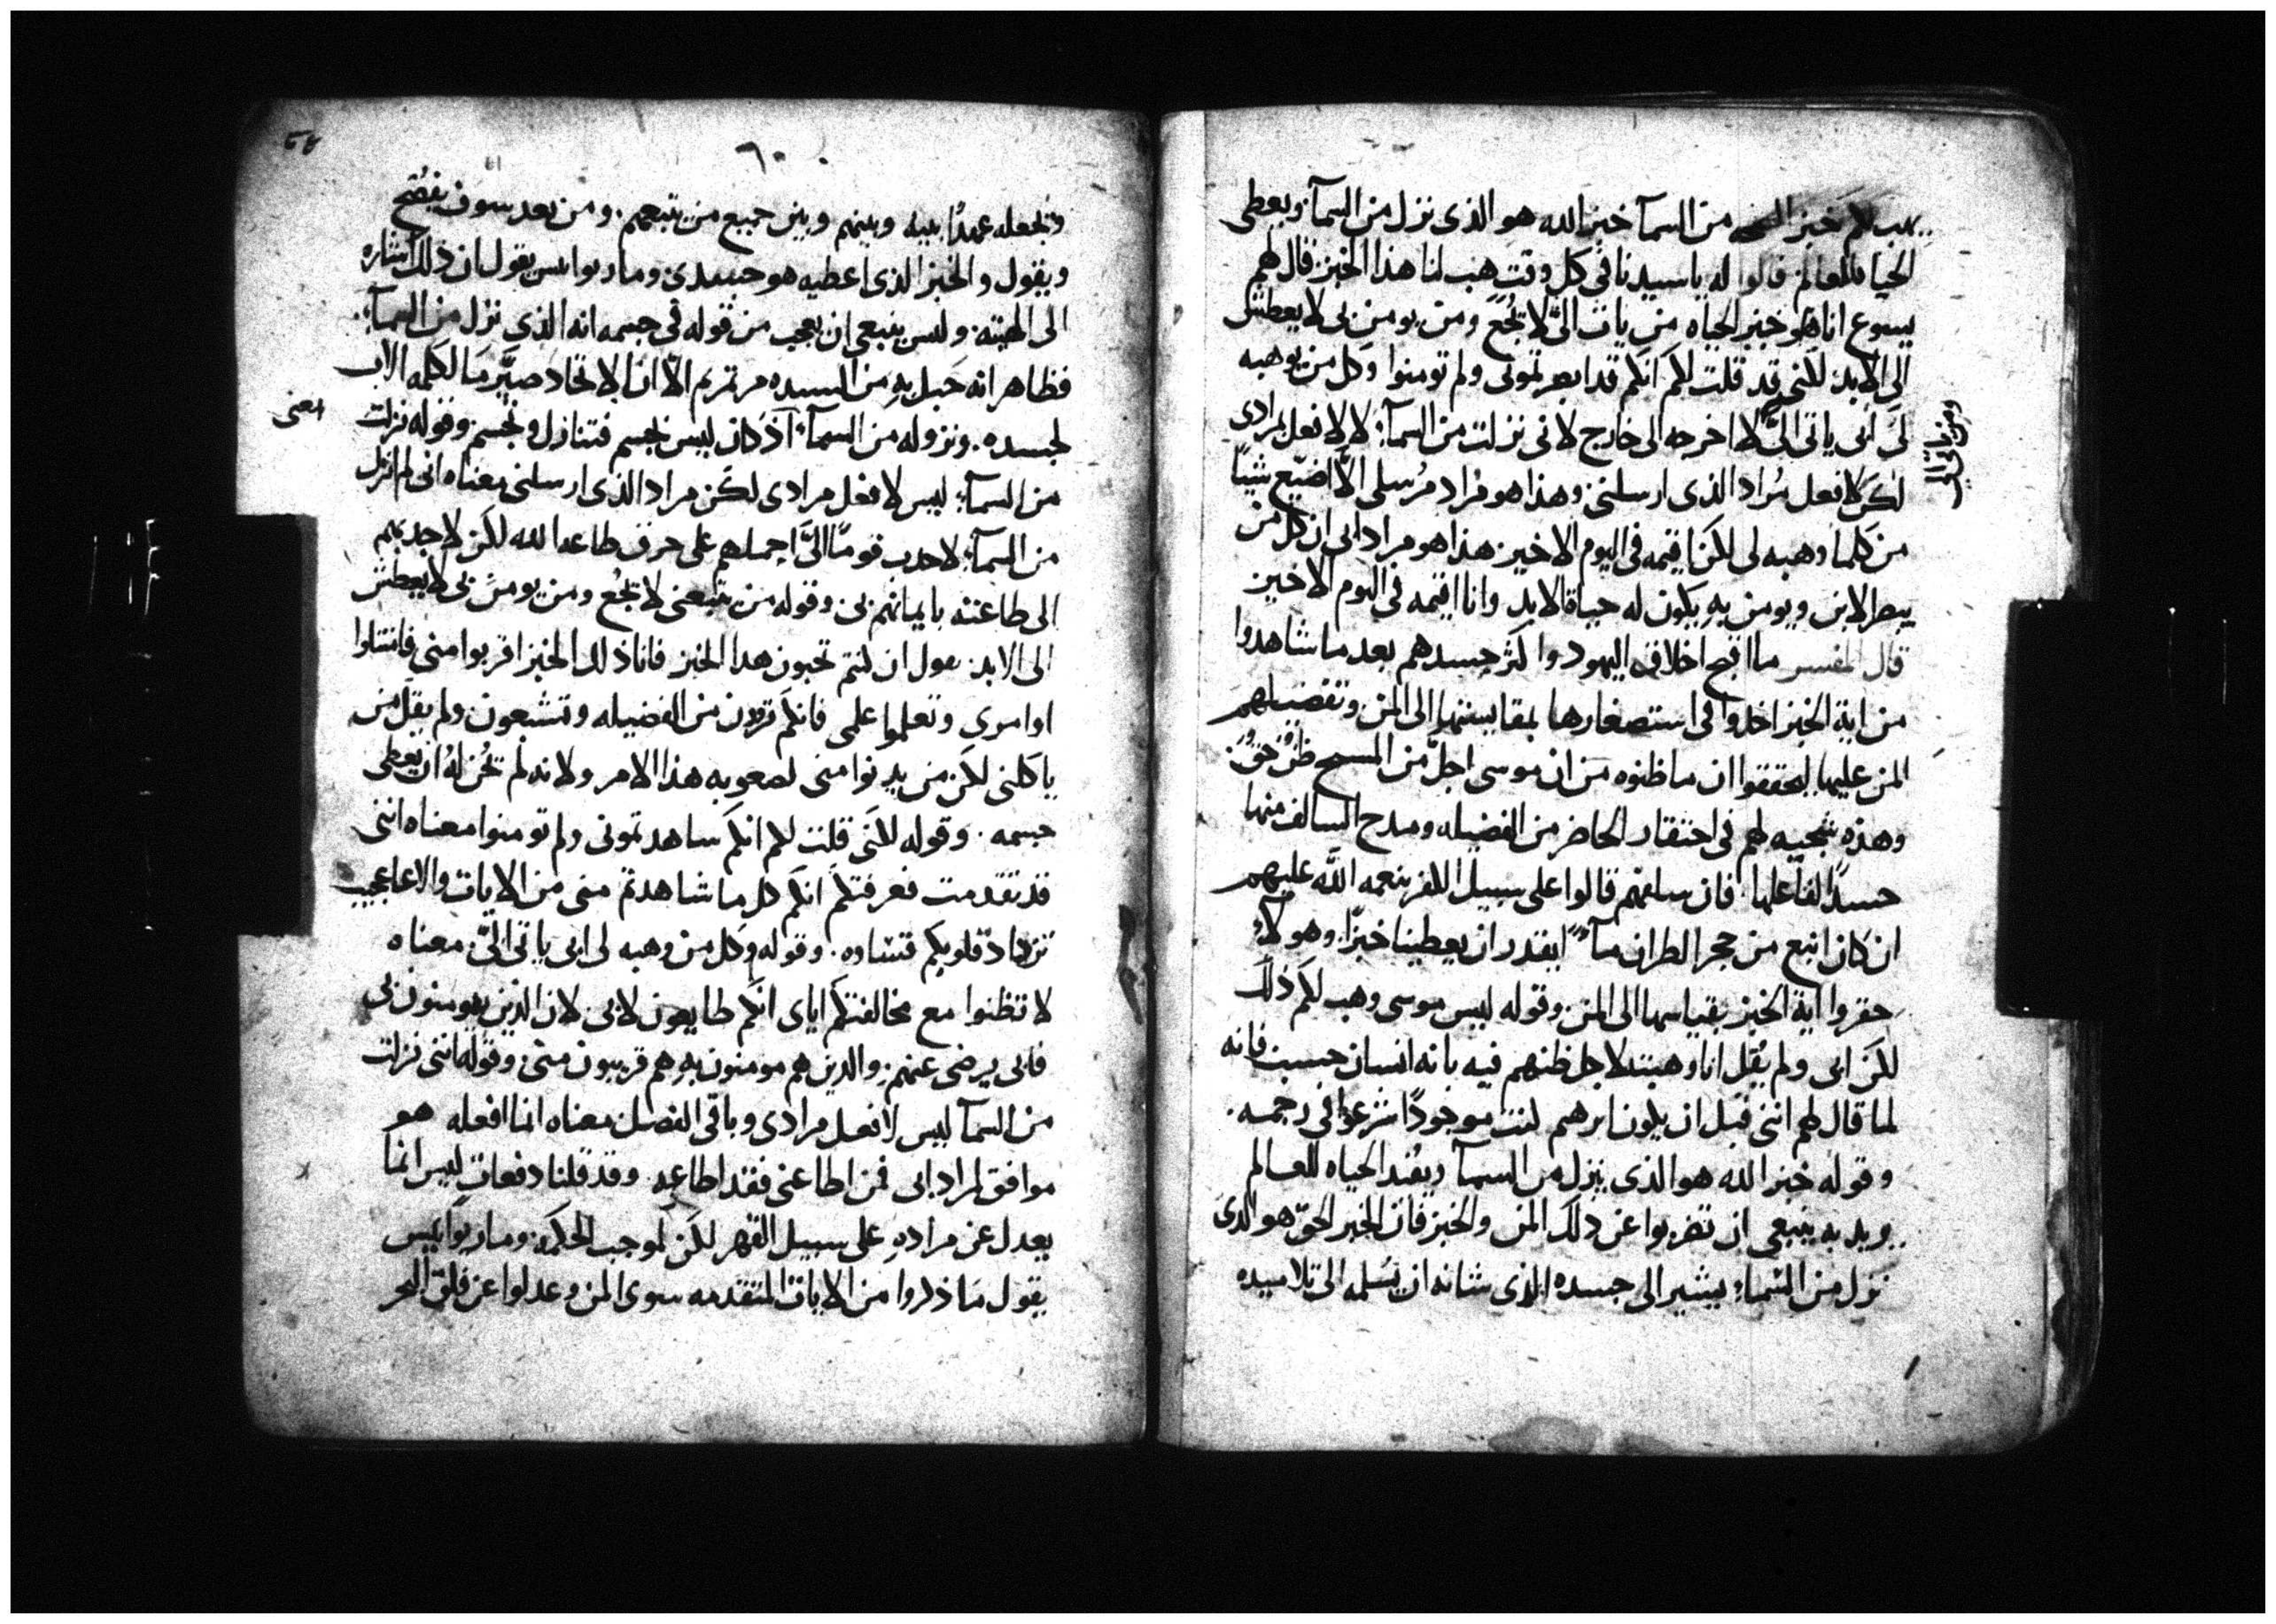 يهب لكم خبز الحق من السمآ خبز الله هو الذى نزل من السمآ ويعطى
الحياه للعالم قالوا له ياسيدنا فى كل وقت هب لنا هذا الخبز قال لهم
يسوع انا هو خبز الحياه من يات الىَّ لا يجُع ومن يومن بى لا يعطش
الى الابد لكنى قد قلت لكم انكم قد ابصرتمونى ولم تومنوا وكل من يوهبه
لى ابى ياتى الىَّ لا اخرجه الى خارج لانى نزلت من السمآء لا لافعل مرادى
ومن ياتى الىّ
لكن لافعل مُراد الذى ارسلنى وهذا هو مُراد مُرسلى الّا اضيّع شيًا
من كلما وهبه لى لكن اقيمه فى اليوم الاخير هذا هو مراد ابى ان كل من
يبصر الابن ويومن به يكون له حياة الابد وانا اقيمه فى اليوم الاخير
قال المفسر ما اقبح اخلاق اليهود واكثر حسدهم بعد ما شاهدوا
من اية الخبز اخذوا فى استصغارها بمقايستها الى المن وتفضيلهم
المن عليها ليحققوا ان ما ظنوه من ان موسى اجلّ من المسيح ظن حق
وهذه سجيه لهم فى احتقار الحاضر من الفضيله ومدح السالف منها
حسدًا لفاعلها فان سلفهم قالوا على سبيل الكفر بنعمه الله عليهم
ان كان انبع من حجر الطران مآءً ايقدر ان يعطينا خبزًا وهولآء
حقروا اية الخبز بقياسها الى المن وقوله ليس موسى وهب لكم ذلك
لكن ابى ولم يقُل انا وهبته لاجل ظنهم فيه بانه انسان حسب فانه
لما قال لهم اننى قبل ان يكون ابرهم كنت موجودًا شرعوا فى رجمه
وقوله خبز الله هو الذى ينزل من السمآ ويفُيد الحياه للعالم
ويريد به ينبغى ان تضربوا عن ذلك المن والخبز فان الخبز الحقّ هو الذى
نزل من السماء يشير الى جسده الذى شانه ان يسُلمه الى تلاميده
٦٠
وتجعله عهدًا بينه وبينهم وبين جميع من يتبعهم ومن بعد سوف يفصُح
ويقول والخبز الذى اعطيه هو جسدى ومار يوانيس يقول ان ذلك اشاره
الى الهيته وليس ينبغى ان يعجب من قوله فى جسمه انه الذى نزل من السمآء
فظاهر انه حَبل به من السيده مرتمريم الاّ ان الاتحاد صيَّر ما لكلمه الاب
لجسده ونزوله من السمآء اذ كان ليس بجسم فتنازل وتجسم وقوله نزلت
اعنى
من السمآء ليس لافعل مرادى لكن مراد الذى ارسلنى معناه انى لم انزل
من السمآء لاجدب قومًا الىَّ اجعلهم على حرف طاعه الله لكن لاجدبهم
الى طاعته بايمانهم بى وقوله من يتبعنى لا يجُع ومن يومن بى لا يعطش
الى الابد يقول ان كنتم تحبون هدا الخبز فانا ذلك الخبز اقربوا منى فامتثلوا
اوامرى وتعلموا علمى فانكم تروون من الفضيله وتشبعون ولم يقل من
ياكلنى لكن من يدنوا منى لصعوبه هذا الامر ولانه لم يحُن له ان يعطى
جسمه وقوله لكنى قلت لكم انكم شاهدتمونى ولم تومنوا معناه اننى
قد تقدمت فعرفتكم انكم كل ما شاهدتم منى من الايات والاعاجيب
تزداد قلوبكم قساوه وقوله وكل من وهبه لى ابى ياتى الىَّ معناه
لا تظنوا مع مخالفتكم اياى انكم طايعون لابى لان الذين يومنون بى
فابى يرضى عنهم والدين هم مومنون به هم قريبون منى وقوله اننى نزلت
من السمآ ليس لافعل مرادى وباقى الفصل معناه انما افعله هو
موافق لمراد ابى فمن اطاعنى فقد اطاعه وقد قلنا دفعات ليس انما
يعدل عن مراده على سبيل القهر لكن لموجب الحكمه ومار يوانيس
يقول ما ذكروا من الايات المتقدمه سوى المن وعدلوا عن فلق البحر